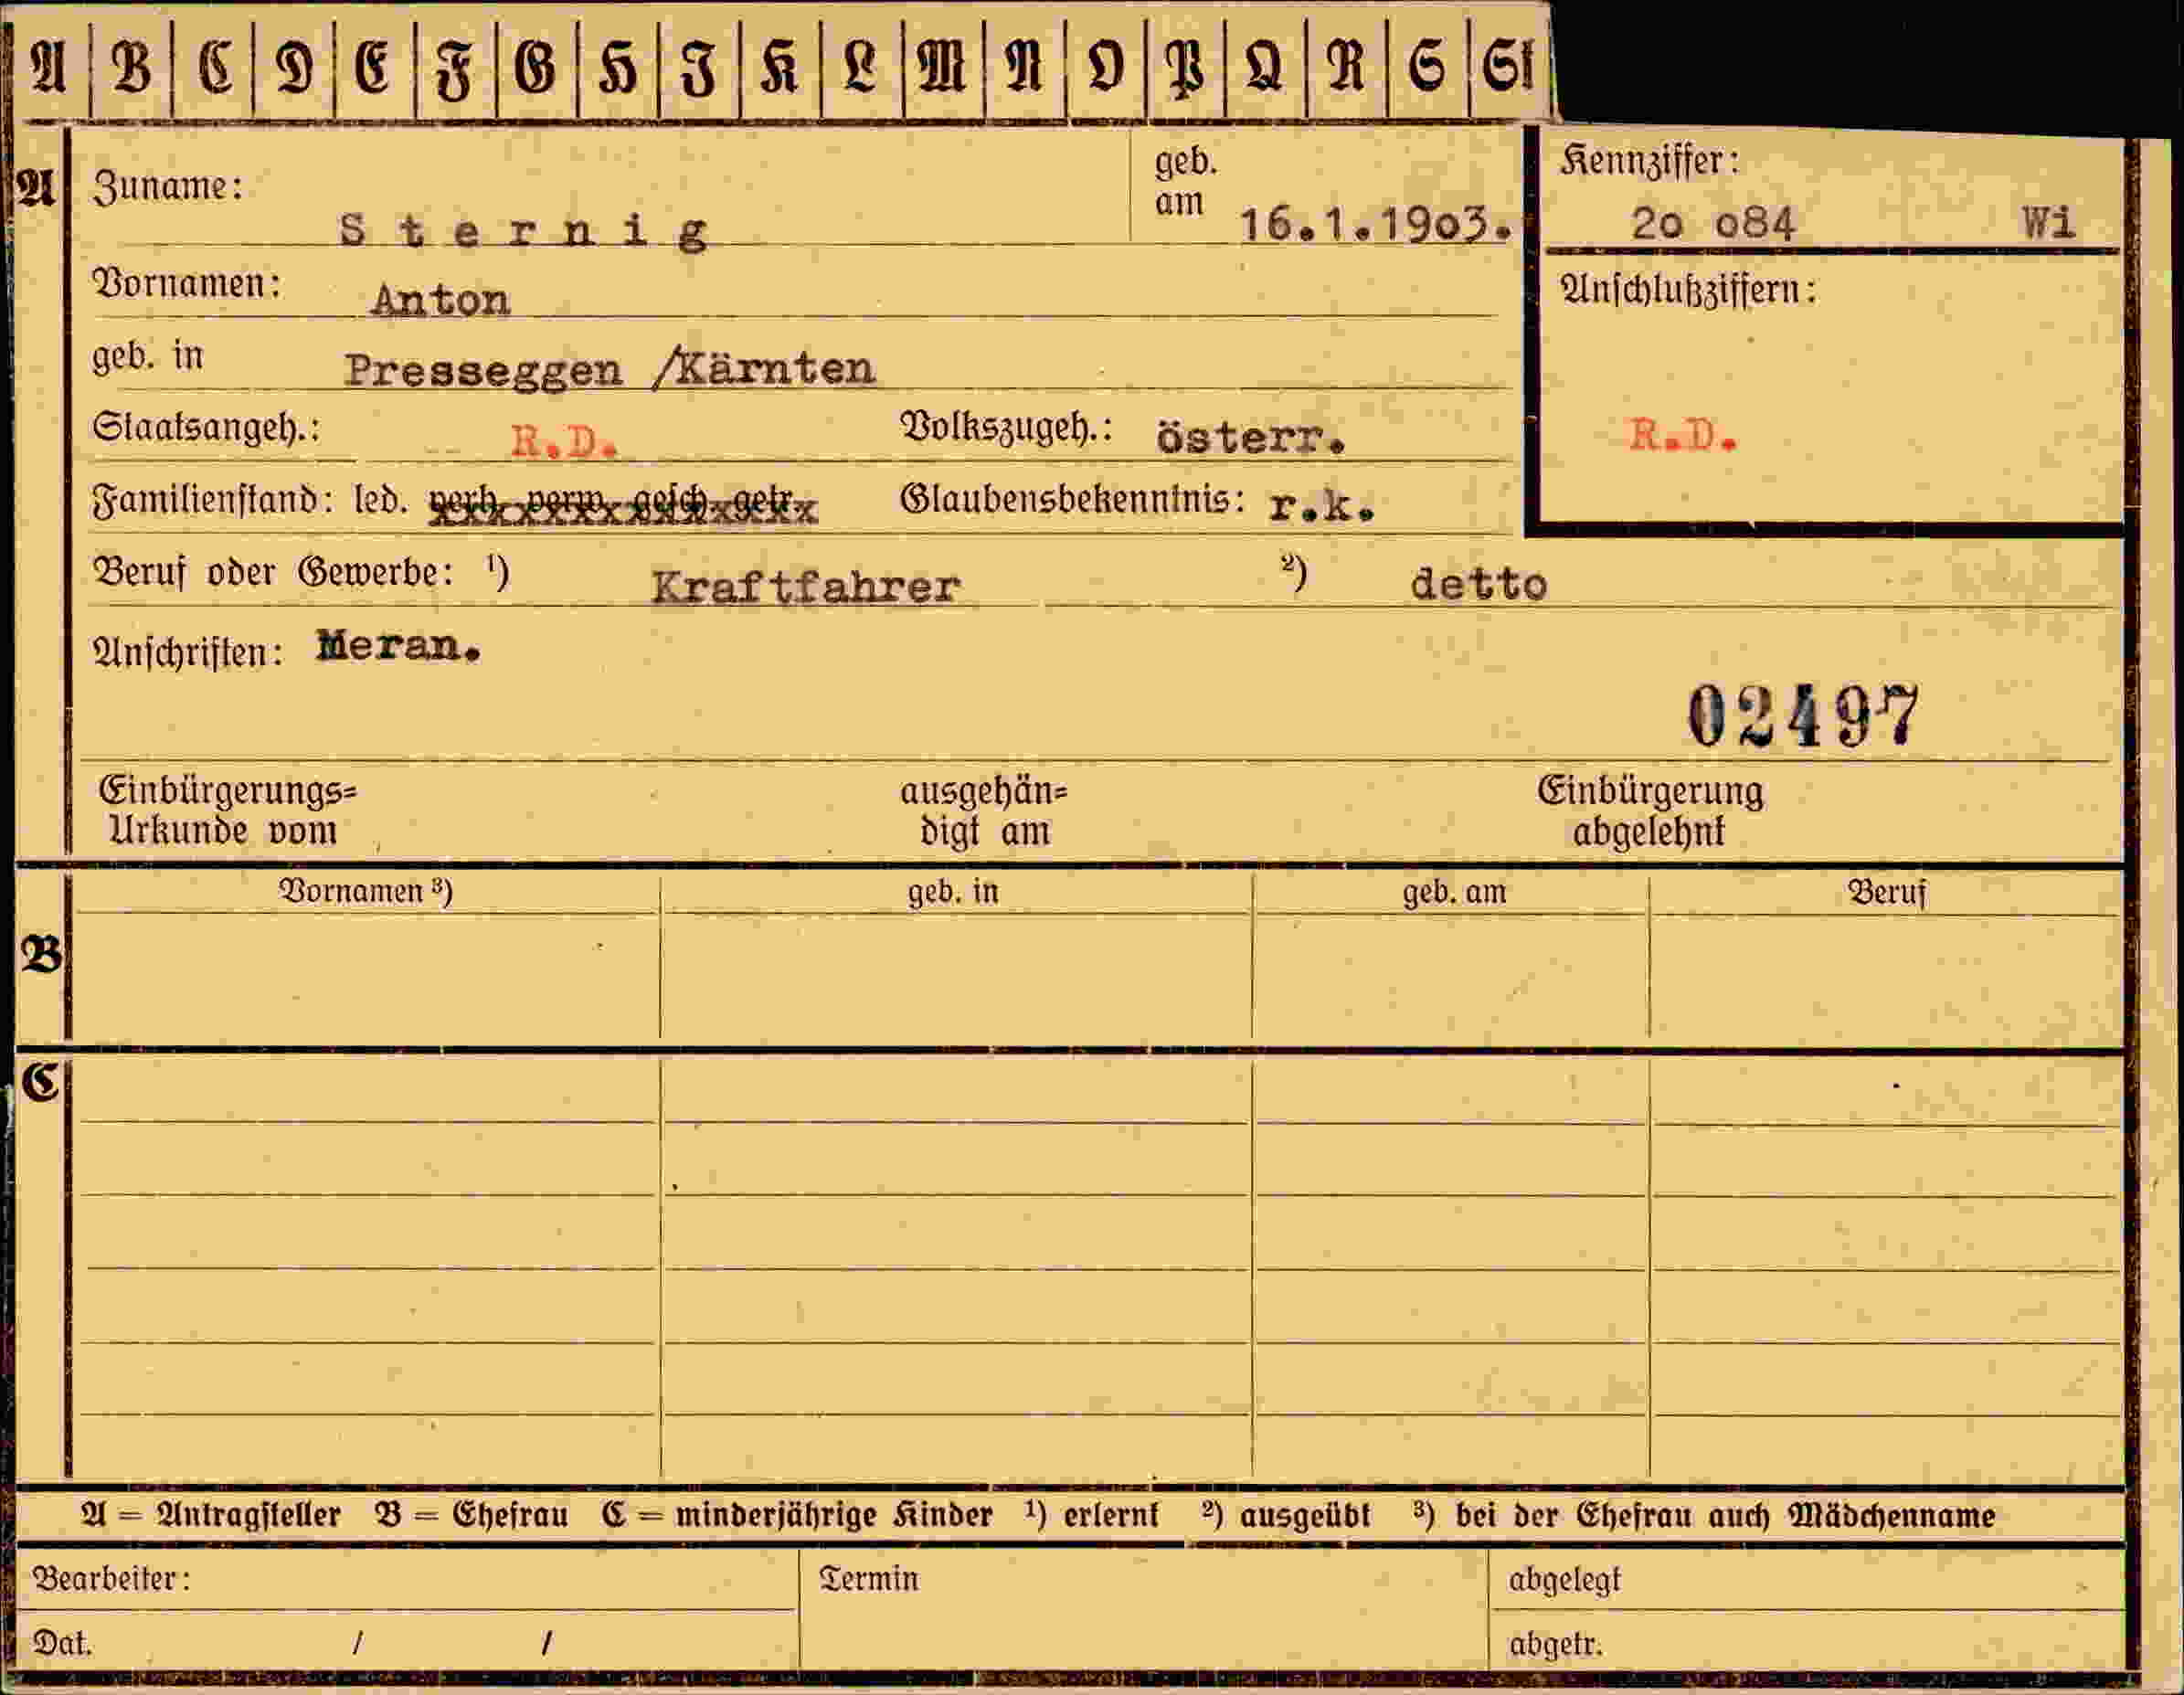 A B C D E F G H I K L M N O P Q R S St
A Zuname: Sternig geb. am 16.1.19o3.
Kennziffer: 2o o84 Wi
Vornamen: Anton
Anschlußziffern:
geb. in Presseggen /Kärnten
Staatsangeh.: R.D. Volkszugeh.: österr.
R.D.
Familienstand: led. verh. verw. gesch. getr. Glaubensbekenntnis: r.k.
Beruf oder Gewerbe: ¹) Kraftfahrer ²) detto
Anschriften: Meran.
02497
Einbürgerungs=
Urkunde vom
ausgehän=
digt am
Einbürgerung
abgelehnt
B Vornamen ³) geb. in geb. am Beruf
C
A = Antragsteller B = Ehefrau C = minderjährige Kinder ¹) erlernt ²) ausgeübt ³) bei der Ehefrau auch Mädchenname
Bearbeiter: Termin abgelegt
Dat. / / abgetr.